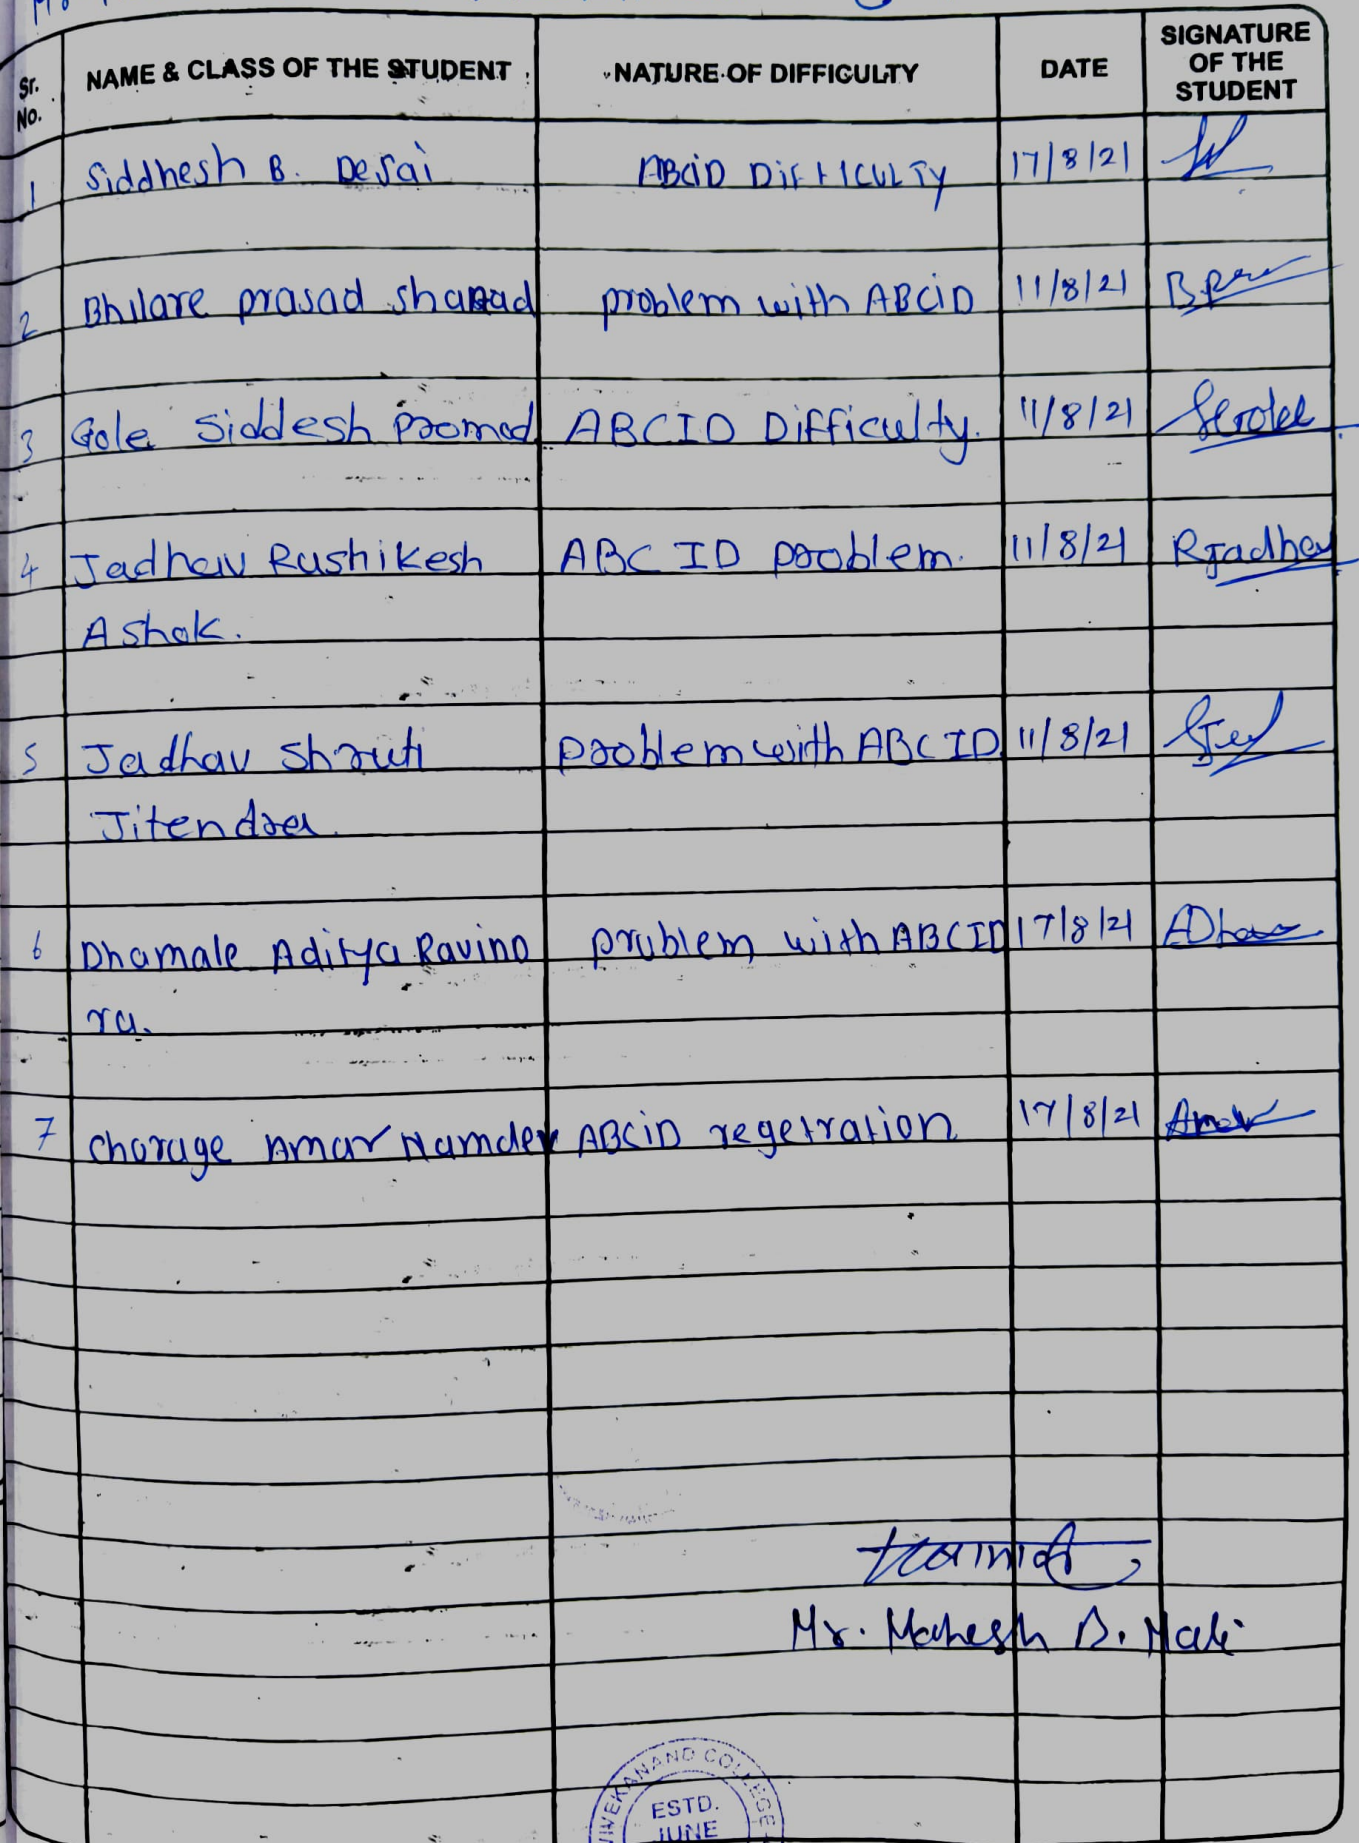 Sr. No.
NAME & CLASS OF THE STUDENT
NATURE OF DIFFICULTY
DATE
SIGNATURE OF THE STUDENT
1 Siddhesh B. Desai ABCiD DiFFICULTY 17/8/21
2 Bhilare prasad sharad problem with ABCiD 11/8/21
3 Gole Siddesh Promod ABCID Difficulty. 11/8/21
4 Jadhav Rushikesh ABC ID problem. 11/8/21 RJadhav
Ashok.
5 Jadhav Shruti problem with ABC ID 11/8/21
Jitendra.
6 Dhamale Aditya Ravind problem with ABCID 17/8/21
ra.
7 Chorage Amar Namdev ABCiD regetration 17/8/21 Amar
Mr. Mahesh B. Mali
VIVEKANAND COLLEGE
ESTD.
JUNE